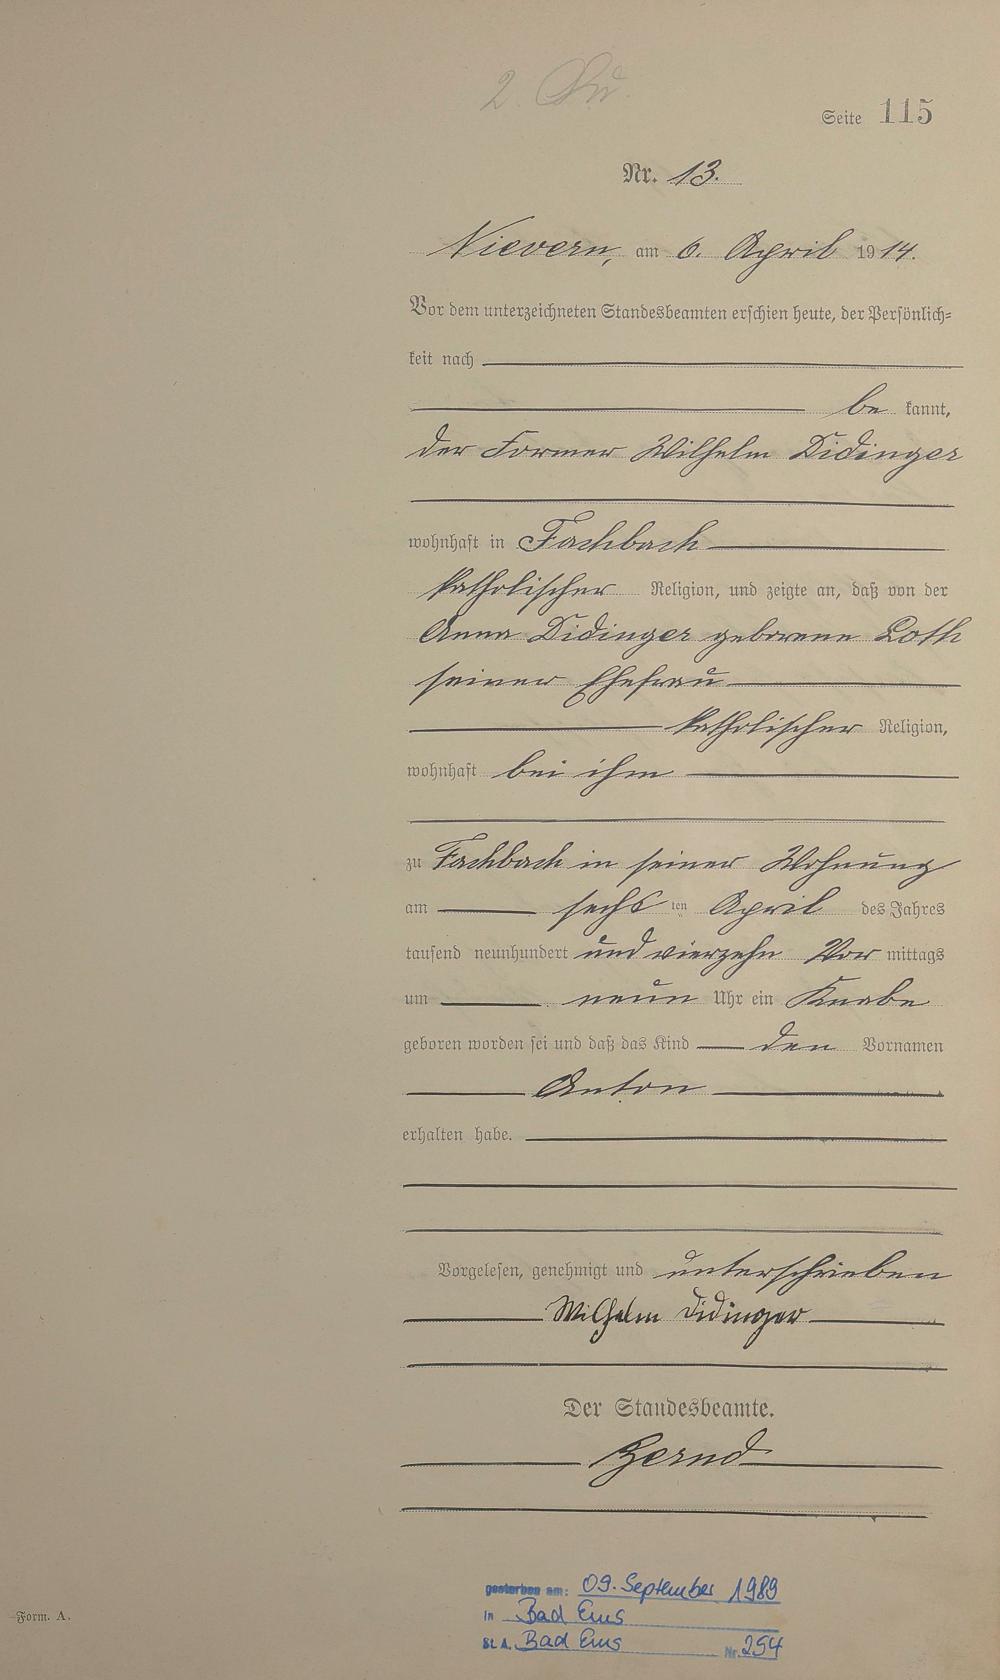 2.
Seite 115
Nr. 13.
Nievern, am 6. April 1914.
Vor dem unterzeichneten Standesbeamten erschien heute, der Persönlich-
keit nach
be kannt,
der Former Wilhelm Didinger
wohnhaft in Fachbach
katholischer Religion, und zeigte an, daß von der
Anna Didinger geborene Loth
seiner Ehefrau
katholischer Religion,
wohnhaft bei ihm
zu Fachbach in seiner Wohnung
am sechs ten April des Jahres
tausend neunhundert und vierzehn Vor mittags
um neun Uhr ein Knabe
geboren worden sei und daß das Kind den Vornamen
Anton
erhalten habe.
Vorgelesen, genehmigt und unterschrieben
Wilhelm Didinger
Der Standesbeamte.
gestorben am: 09. September 1989
in Bad Ems
St. A. Bad Ems Nr. 254
Form. A.